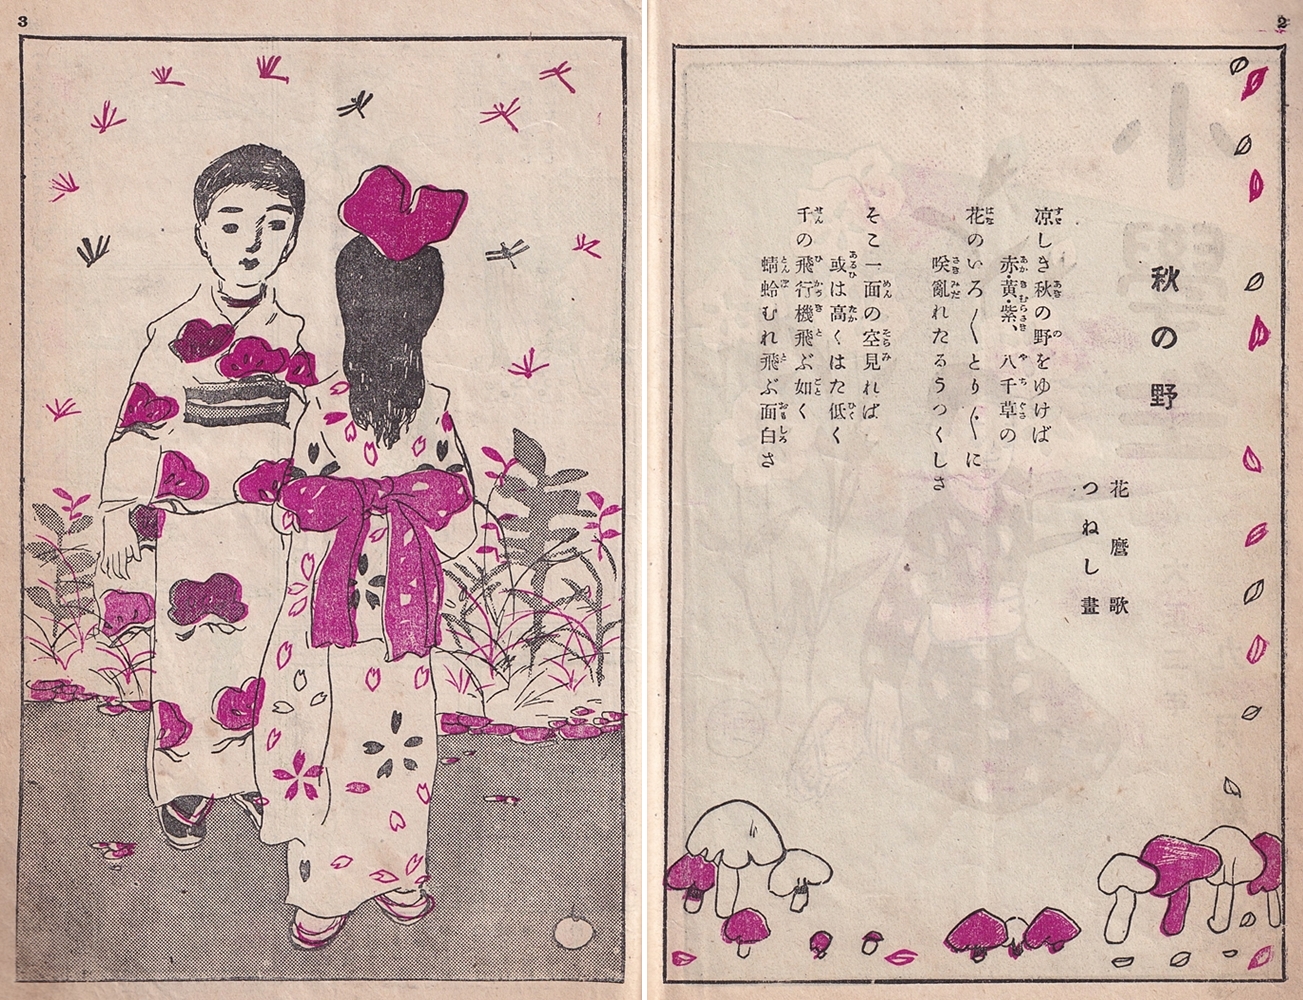 2
秋の野
花麿歌
つねし畫
凉しき秋の野をゆけば
赤・黄・紫、八千草の
花のいろ〱とり〲に
咲亂れたるうつくしさ
そこ一面の空見れば
或は高くはた低く
千の飛行機飛ぶ如く
蜻蛉むれ飛ぶ面白さ
3